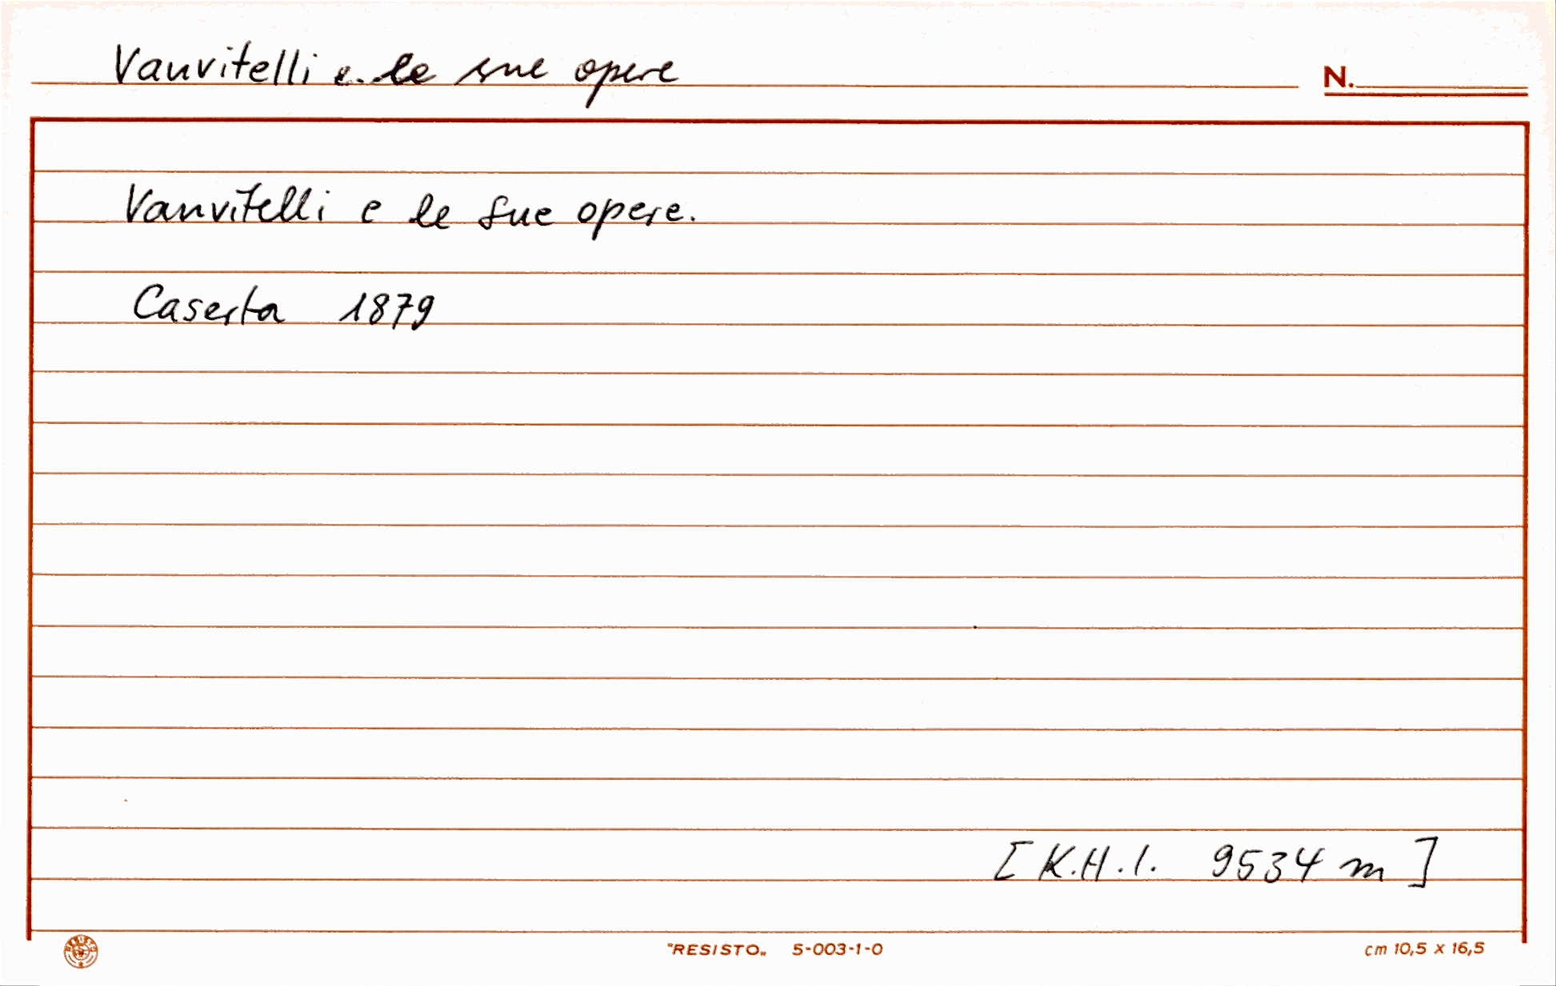 Vanvitelli e le sue opere
N.
Vanvitelli e le sue opere.
Caserta 1879
[K.H.I. 9534 m]
"RESISTO„ 5-003-1-0
cm 10,5 x 16,5